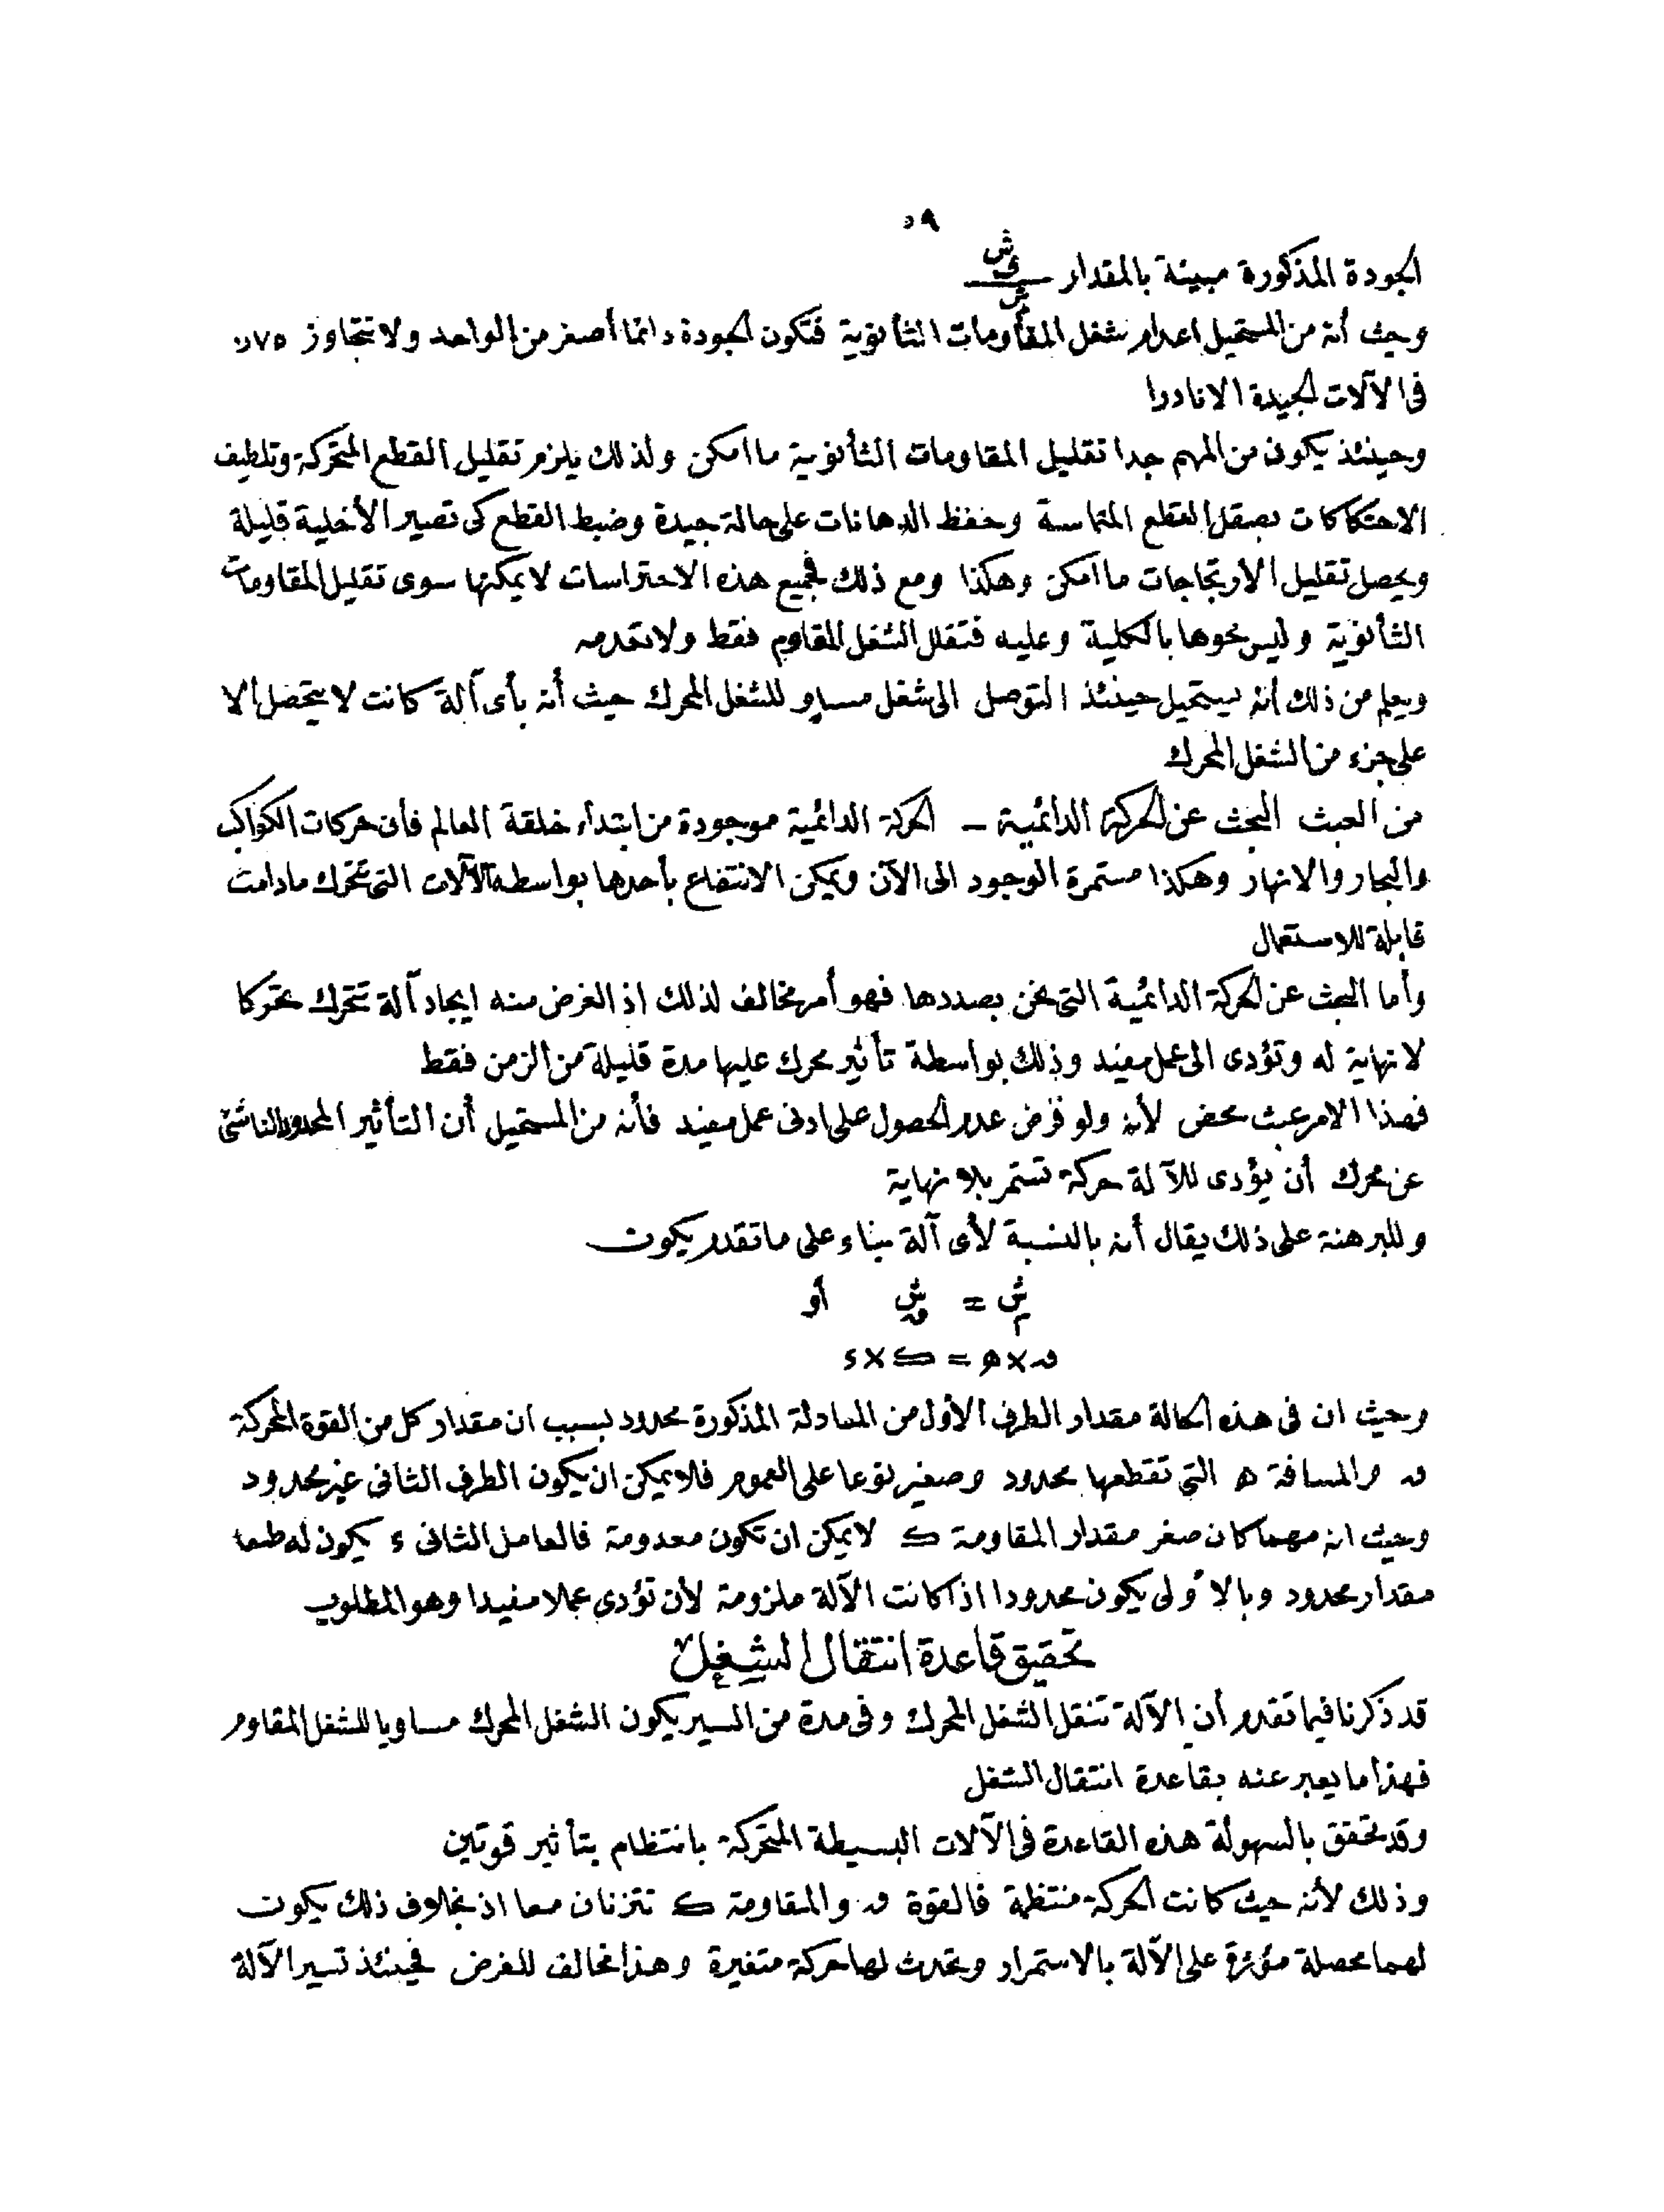 ٥٩
الجودة المذكورة مبينة بالمقدار ش ى / ش م
وحيث أنه من المستحيل اعدام شغل المقاومات الثأنوية فتكون الجودة دائما أصغر من الواحد ولا تتجاوز ٧٥ر.
فى الآلات الجيدة الا نادرا
وحينئذ يكون من المهم جدا تقليل المقاومات الثأنوية ما امكن ولذلك يلزم تقليل القطع المتحركة وتلطيف
الاحتكاكات بصقل القطع المتماسة وحفظ الدهانات على حالة جيدة وضبط القطع كى تصير الأخلية قليلة
ويحصل تقليل الارتجاجات ما امكن وهكذا ومع ذلك فجميع هذه الاحتراسات لا يمكنها سوى تقليل المقاومات
الثأنوية وليس نحوها بالكلية وعليه فتقلل الشغل المقاوم فقط ولا تعدمه
ويعلم من ذلك أنه يستحيل حينئذ التوصل الى شغل مساو للشغل المحرك حيث أنه بأى آلة كانت لا يتحصل الا
على جزء من الشغل المحرك
من العبث البحث عن الحركة الدائمية — الحركة الدائمية موجودة من ابتداء خلقة العالم فأن حركات الكواكب
والبحار والانهار وهكذا مستمرة الوجود الى الآن ويمكن الانتفاع بأحدها بواسطة الآلات التى تتحرك مادامت
قابلة للاستعمال
وأما البحث عن الحركة الدائمية التى نحن بصددها فهو أمر مخالف لذلك اذ الغرض منه ايجاد آلة تتحرك تحركا
لا نهاية له وتؤدى الى عمل مفيد وذلك بواسطة تأثير محرك عليها مدة قليلة من الزمن فقط
فهذا الامر عبث محض لأنه ولو فرض عدم الحصول على ادنى عمل مفيد فأنه من المستحيل أن التأثير المحدود الناشئ
عن محرك أن يؤدى للآلة حركة تستمر بلا نهاية
وللبرهنة على ذلك يقال أنه بالنسبة لأى آلة بناء على ما تقدم يكون
ش م = ش ق أو
ق × ھ = ک × ء
وحيث ان فى هذه الحالة مقدار الطرف الأول من المعادلة المذكورة محدود بسبب ان مقدار كل من القوة المحركة
ق والمسافة ھ التي تقطعها محدود وصغير نوعا على العموم فلا يمكن ان يكون الطرف الثانى غير محدود
وحيث انه مهما كان صغر مقدار المقاومة ک لا يمكن ان تكون معدومة فالعامل الثانى ء يكون له طبعا
مقدار محدود وبالأولى يكون محدودا اذا كانت الآلة ملزومة لأن تؤدى عملا مفيدا وهو المطلوب
تحقيق قاعدة انتقال الشغل
قد ذكرنا فيما تقدم أن الآلة تنقل الشغل المحرك وفى مدة من السير يكون الشغل المحرك مساويا للشغل المقاوم
فهذا ما يعبر عنه بقاعدة انتقال الشغل
وقد تحقق بالسهولة هذه القاعدة فى الآلات البسيطة المتحركة بانتظام بتأثير قوتين
وذلك لأنه حيث كانت الحركة منتظمة فالقوة ق والمقاومة ک تتزنان معا اذ بخلاف ذلك يكون
لهما محصلة مؤثرة على الآلة بالاستمرار وتحدث لها حركة متغيرة وهذا مخالف للغرض فحينئذ تسير الآلة